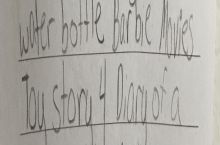 water bottle Barbie Movies
Toy story 4 Diary of a